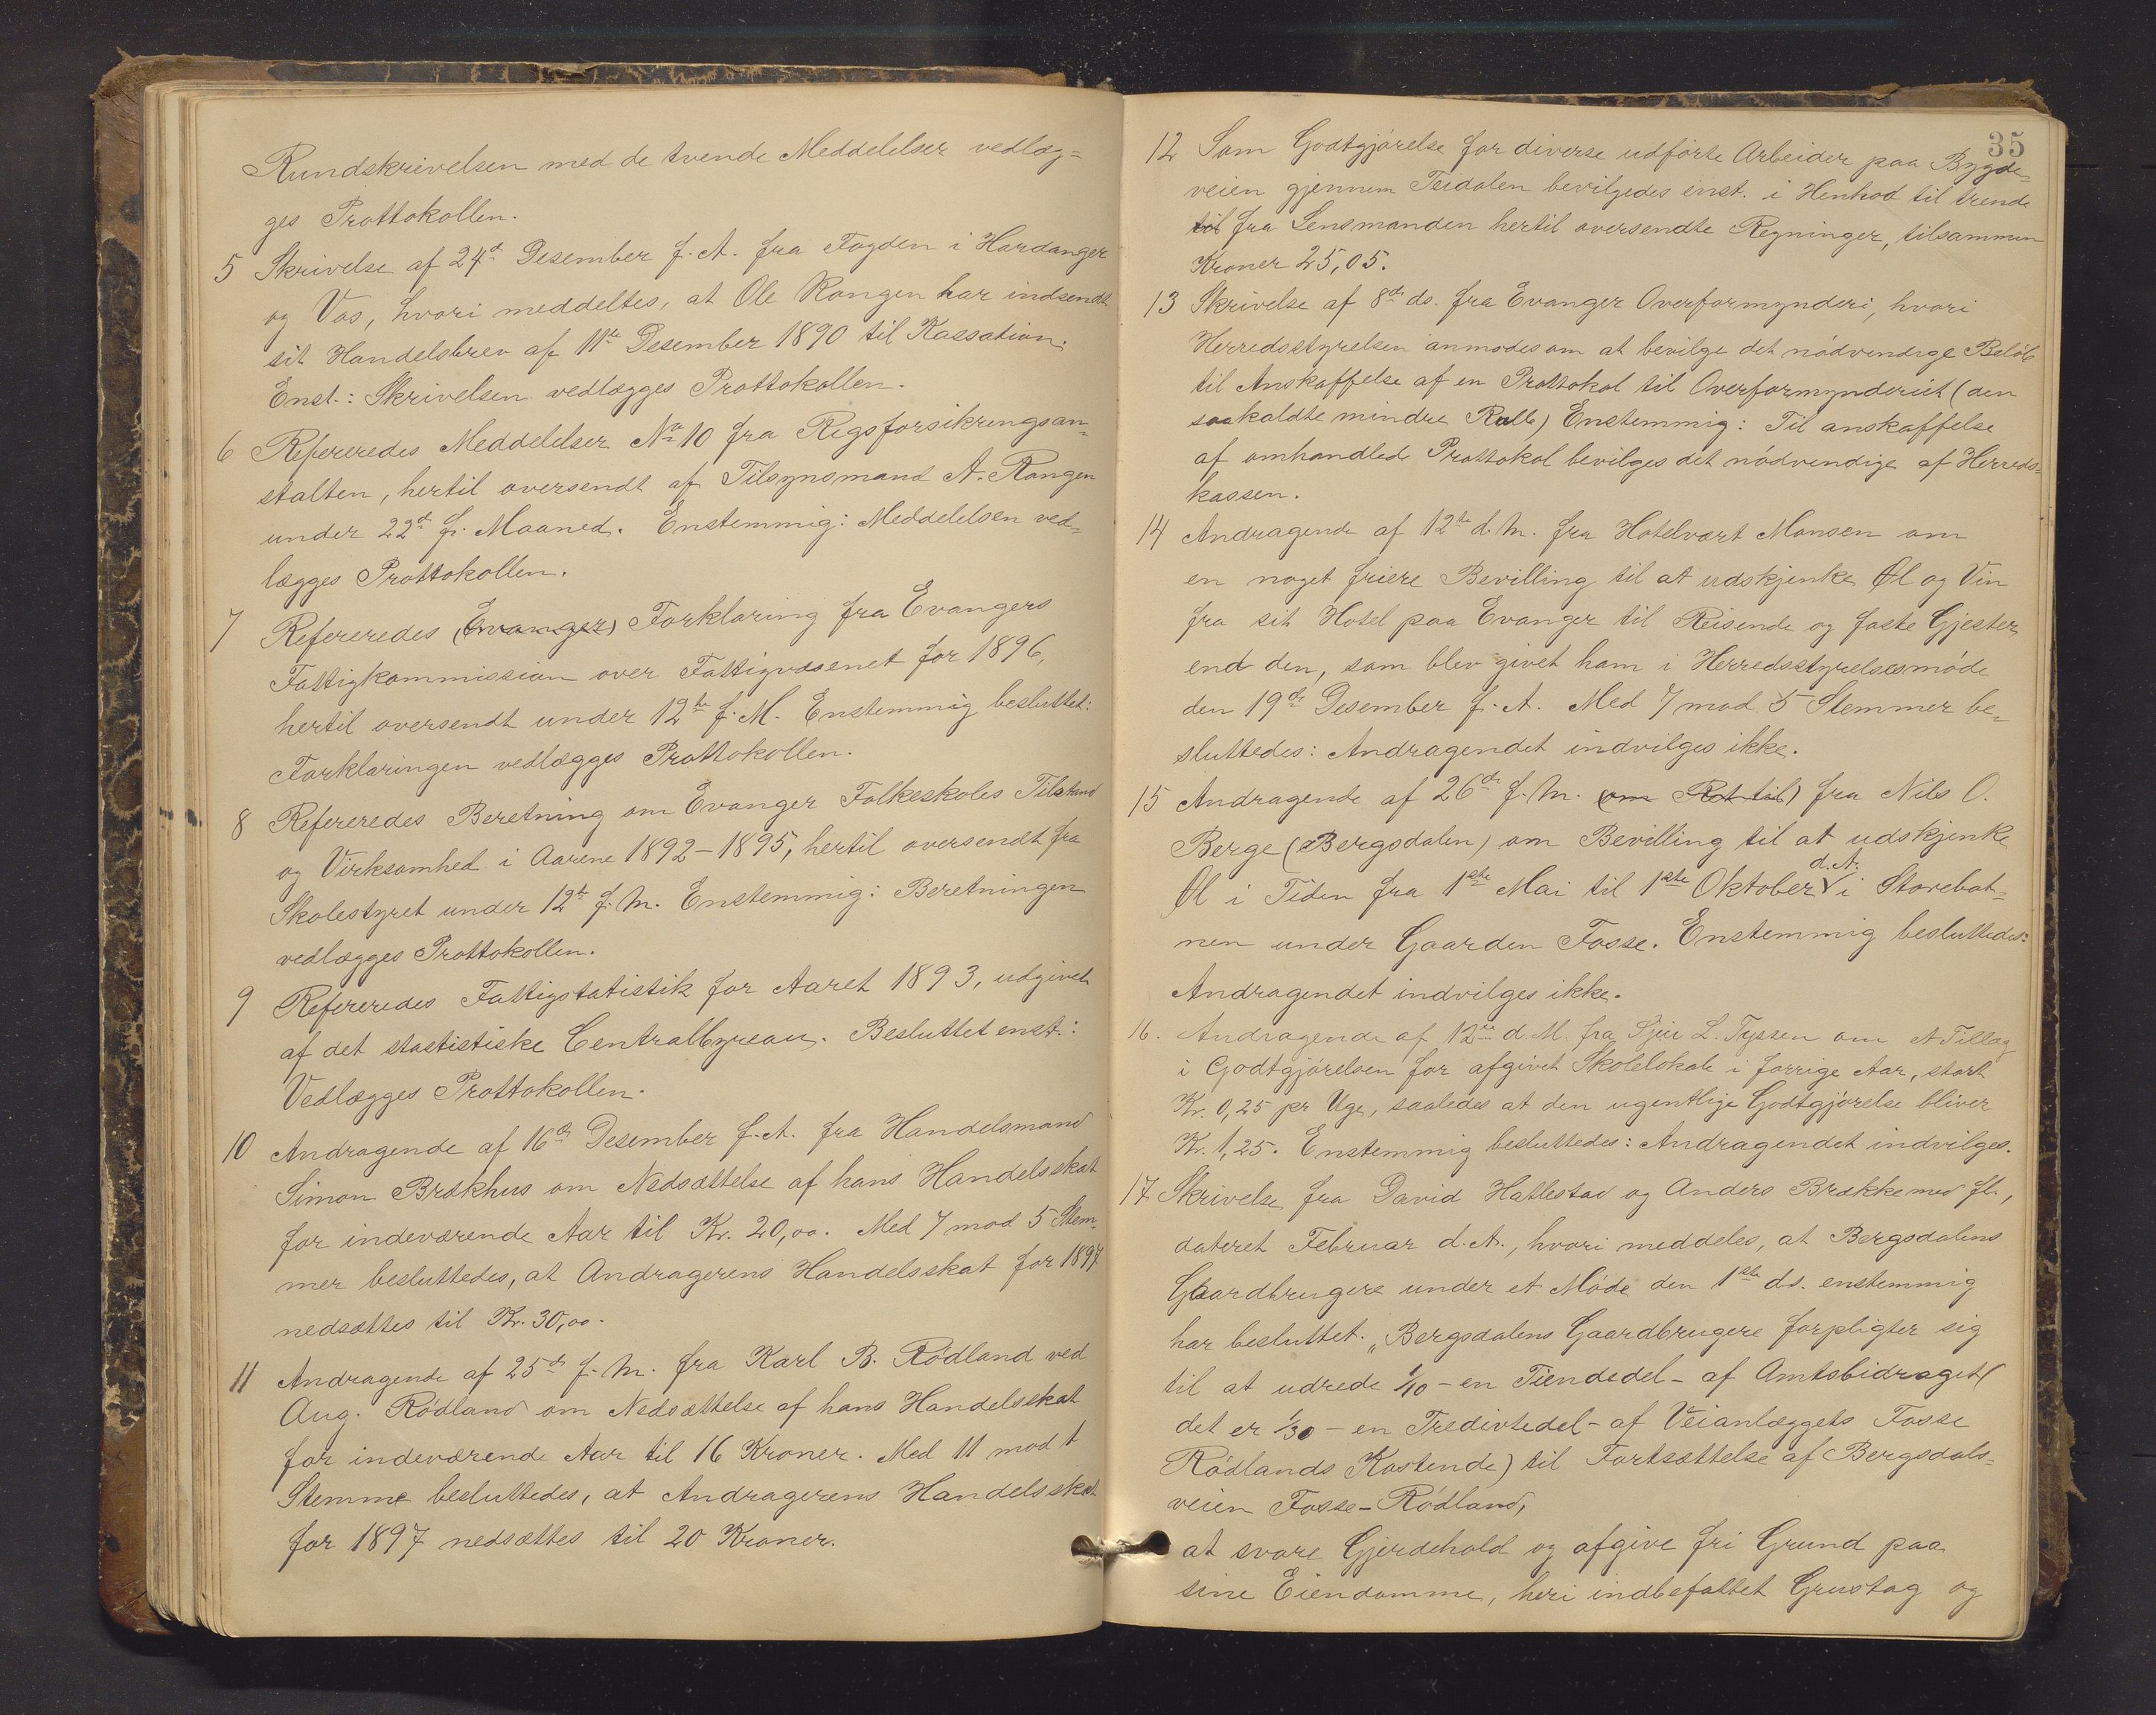 Rundskrivelsen med de tvende Meddelelser vedlæg=
ges Prottokollen.
5 Skrivelse af 24d Desember f. A. fra Fogden i Hardanger
og Vos, hvori meddeltes, at Ole Rongen har indsendt
sit Handelsbrev af 11te Desember 1890 til Kassation.
Enst.: Skrivelsen vedlægges Prottokollen.
6 Refereredes Meddelelser No 10 fra Rigsforsikringsan=
stalten, hertil oversendt af Tilsynsmand A. Rongen
under 22d f. Maaned. Enstemmig: Meddelelsen ved=
lægges Prottokollen.
7 Refereredes (Evanger) Forklaring fra Evangers
Fattigkommission over Fattigvæsenet for 1896,
hertil oversendt under 12te f. M. Enstemmig besluttet:
Forklaringen vedlægges Prottokollen.
8 Refereredes Beretning om Evanger Folkeskoles Tilstand
og Virksomhed i Aarene 1892-1895, hertil oversendt fra
Skolestyret under 12te f. M. Enstemmig: Beretningen
vedlægges Prottokollen.
9 Refereredes Fattigstatistik for Aaret 1893, udgivet
af det stastistiske Centralbyreau. Besluttet enst.:
Vedlægges Prottokollen.
10 Andragende af 16de Desember f. A. fra Handelsmand
Simon Brækhus om Nedsættelse af hans Handelsskat
for indeværende Aar til Kr. 20,00. Med 7 mod 5 Stem=
mer besluttedes, at Andragerens Handelsskat for 1897
nedsættes til Kr. 30,00.
11 Andragende af 25de f. M. fra Karl B. Rödland ved
Aug. Rödland om Nedsættelse af hans Handelsskat
for indeværende Aar til 16 Kroner. Med 11 mod 1
Stemme besluttedes, at Andragerens Handelsskat
for 1897 nedsættes til 20 Kroner.
35
12 Som Godtgjörelse for diverse udförte Arbeider paa Bygde=
veien gjennem Teidalen bevilgedes enst. i Henhod til trende
til fra Lensmanden hertil oversendte Regninger, tilsammen
Kroner 25,05.
13 Skrivelse af 8de ds. fra Evanger Overformynderi, hvori
Herredsstyrelsen anmodes om at bevilge det nödvendige Belöb
til Anskaffelse af en Prottokol til Overformynderiet (den
saakaldte mindre Rulle) Enstemmig: Til anskaffelse
af omhandlede Prottokol bevilges det nödvendige af Herreds=
kassen.
14 Andragende af 12te d. M. fra Hotelvært Monsen om
en noget friere Bevilling til at udskjenke Øl og Vin
fra sit Hotel paa Evanger til Reisende og faste Gjester,
end den, som blev givet ham i Herredsstyrelsesmöde
den 19de Desember f. A. Med 7 mod 5 Stemmer be=
sluttedes: Andragendet indvilges ikke.
15 Andragende af 26de f. M. (om Ret til) fra Nils O.
Berge (Bergsdalen) om Bevilling til at udskjenke
Øl i Tiden fra 1ste Mai til 1ste Oktober d. A. i Storebot=
nen under Gaarden Fosse. Enstemmig besluttedes:
Andragendet indvilges ikke.
16. Andragende af 12te d. M. fra Sjur L. Tyssen om et Tillæg
i Godtgjörelsen for afgivet Skolelokale i forrige Aar, stort
Kr. 0,25 pr Uge, saaledes at den ugentlige Godtgjörelse bliver
Kr. 1,25. Enstemmig besluttedes: Andragendet indvilges.
17. Skrivelse fra David Hatlestad og Anders Brække med fl.,
dateret Februar d. A., hvori meddeles, at Bergsdalens
Gaardbrugere under et Möde den 1ste ds. enstemmig
har besluttet. „Bergsdalens Gaardbrugere forpligter sig
til at udrede 1/10 - en Tiendedel - af Amtsbidraget (
det er 1/30 - en Tredivtedel - af Veianlæggets Fosse
Rödlands Kostende) til Fortsættelse af Bergsdals=
veien Fosse-Rödland,
at svare Gjerdehold og afgive fri Grund paa
sine Eiendomme, heri indbefattet Grustag og